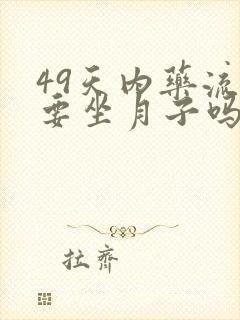 49天内药流
要坐月子吗
拉齐